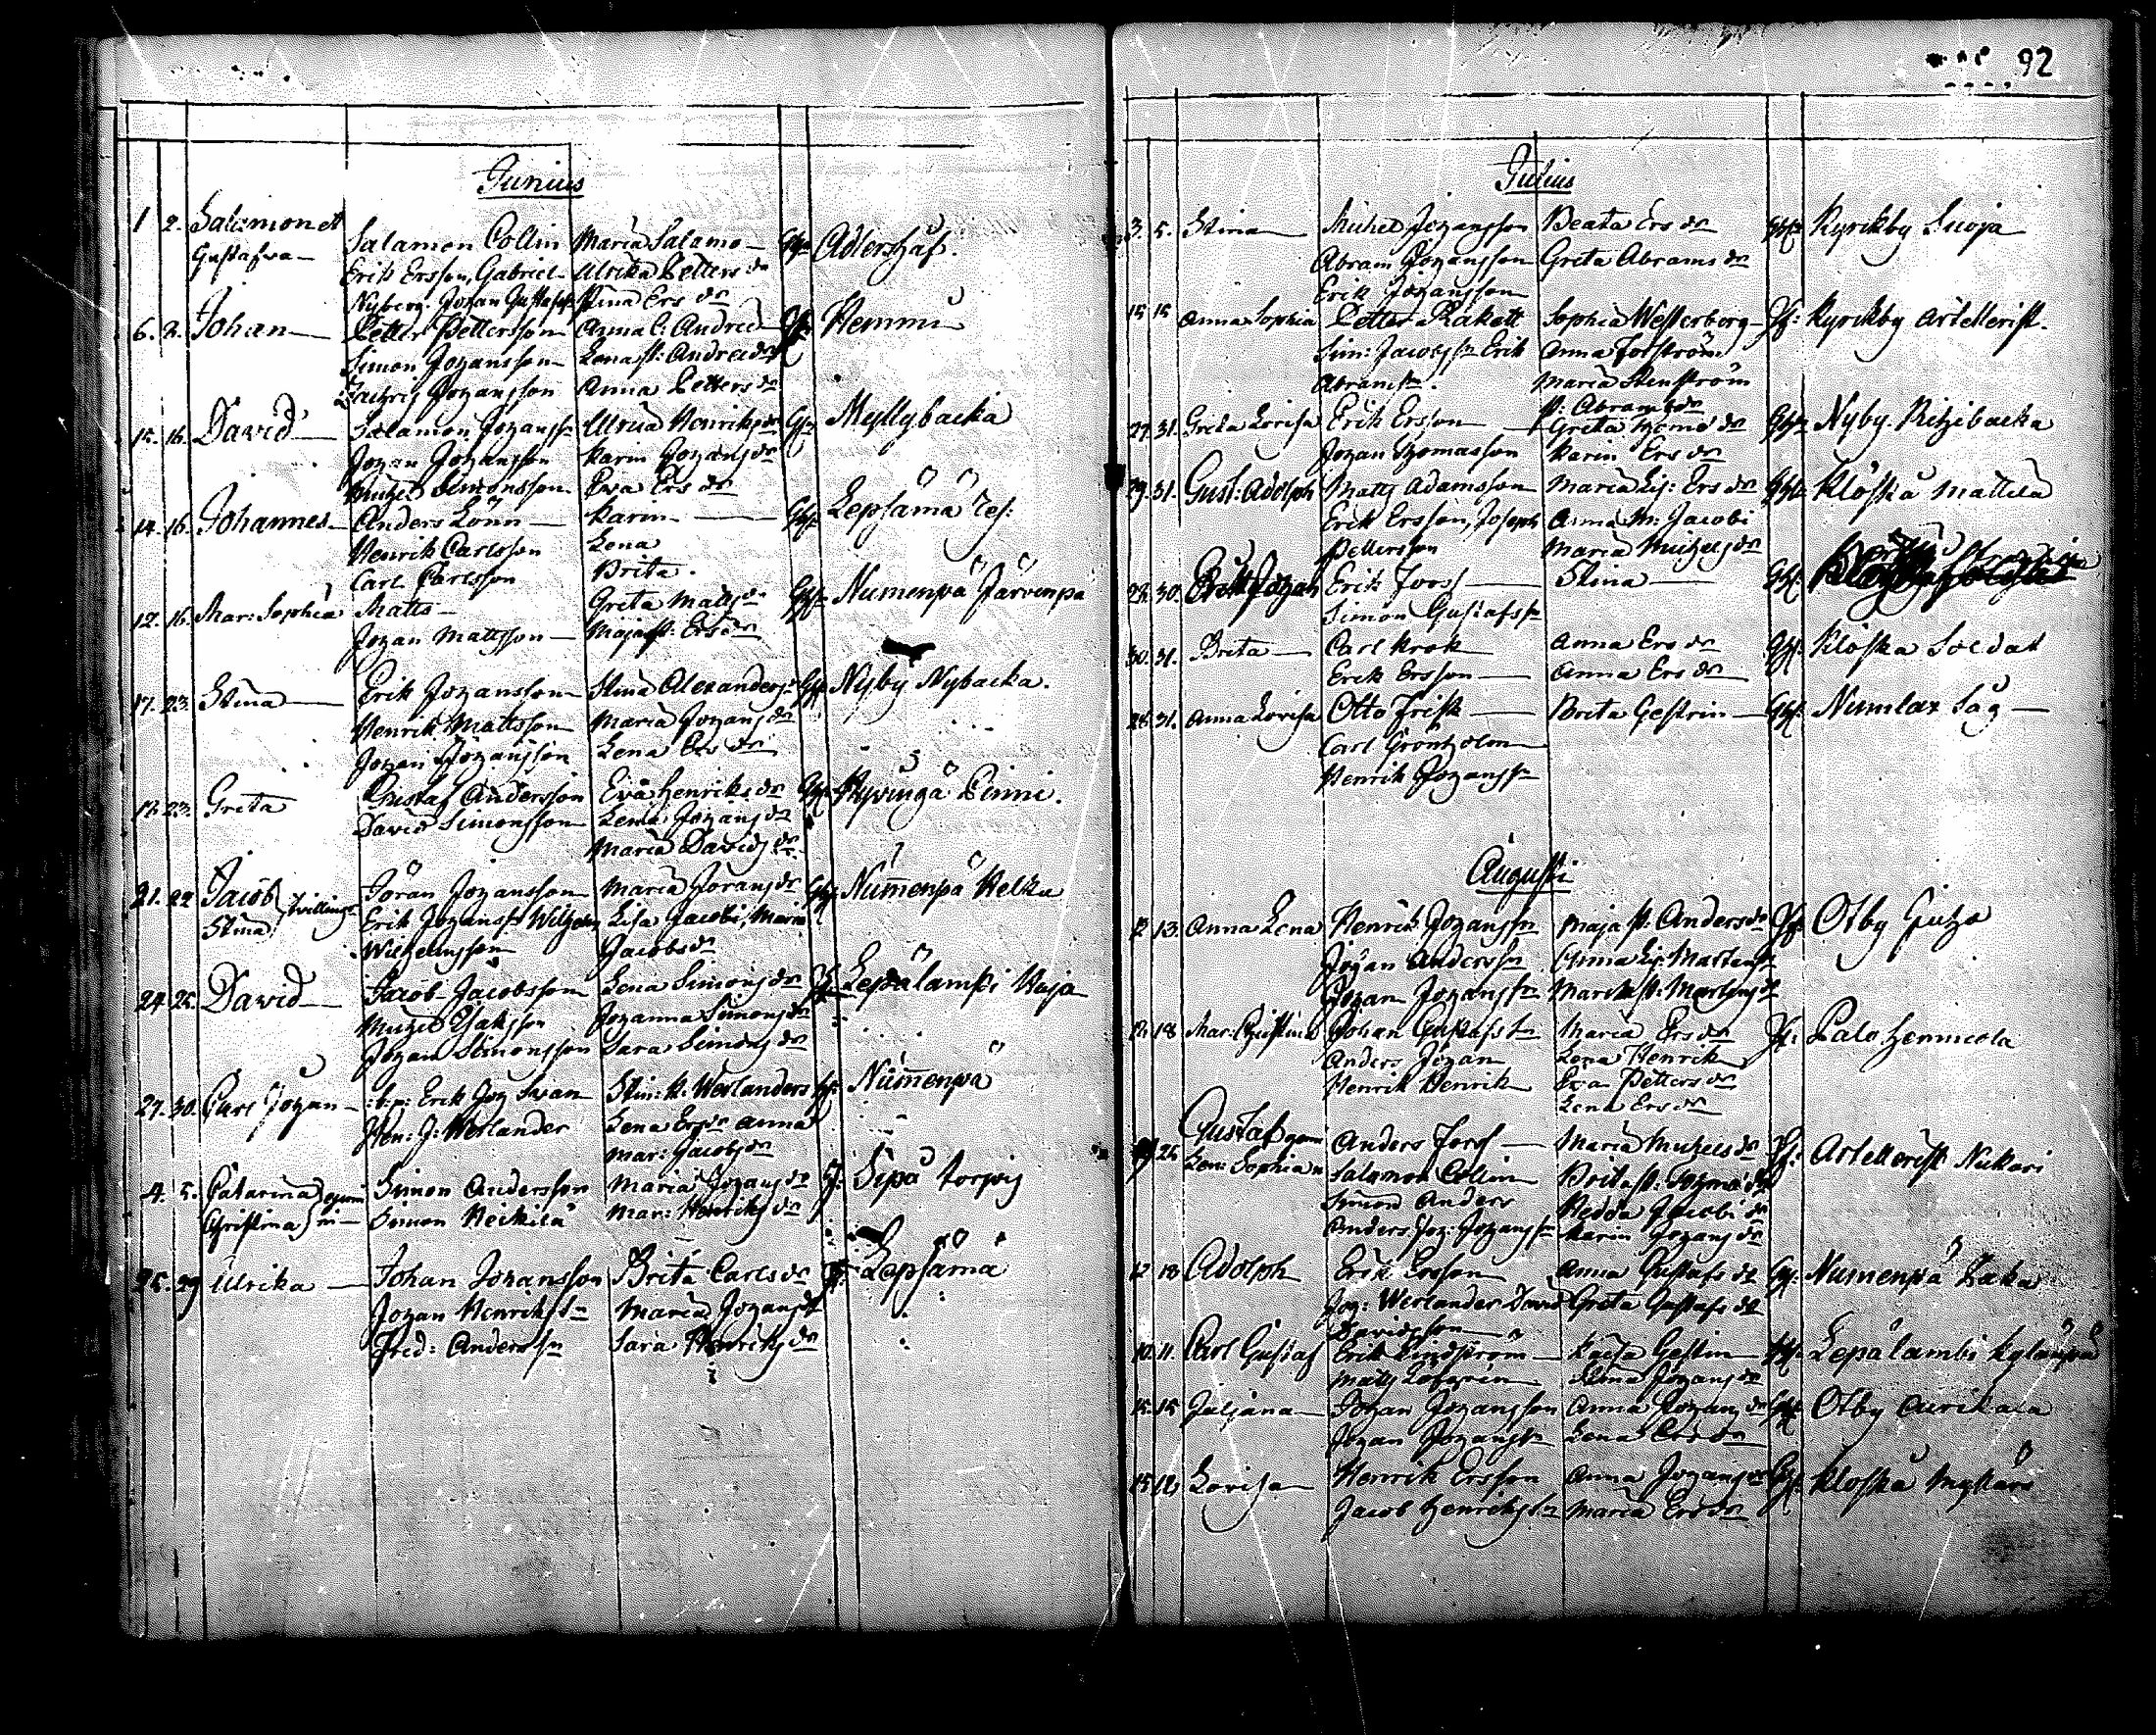 92
Junius
1 2. Salamon et Salamon Collin Maria Salamo Adlershaf.
Gustafva Erik Ersson, Gabriel Ulrika Petters dr
Nyberg. Johan Gustafss Stina Ers dr
6. 2. Johan Petter Pettersson Anna C: Andred Hemmi
Simon Johansson Lena st: Andreedr
Zachris Johansson Anna Petters dr
15. 16. David Salamon Johanss Ulrica Henriks dr Myllybacka
Johan Johansson Karin Johans dr
Michel Simonsson Eva Ers dr
14. 16. Johannes Anders Lönn Karin Lepsämä
Henrik Carlsson Lena
Carl Carlsson Brita.
12. 16. Mar: Sophia Matts Greta Matts dr Numenpä Järvenpä
Johan Mattsson Maja st: Ers dr
17. 23. Stina Erik Johansson Stina Alexanders Nyby Nybacka.
Henrik Mattsson Maria Johans dr
Johan Johansson Lena Ers dr
17. 23. Greta Gustaf Andersson Eva Henriks dr Hyvingä Pinni.
David Simonsson Lena Johans dr
Maria Davids dr
21. 22 Jacob Tvilling Jöran Johansson Maria Jorans dr Numenpä Helka
Stina Erik Johanss Wilhelm Lisa Jacobi, Maria
Wilhelmsson Jacobs dr
24 25. David Jacob Jacobsson Lena Simons dr Lepälampi Haja
Michel Isaksson Johanna Simons dr
Johan Simonsson Sara Simons dr
27. 30. Carl Johan Erik Joh Swan Stin: K. Werlanders Numenpä
Hen: J: Werlander Lena Ers dr Anna
Mar: Jacobs dr
4. 5. Catarina gemi Simon Andersson Maria Johans dr Sipu torpig
Christina ni Simon Heikilä Mar: Henriks dr
25. 29 Ulrika Johan Johansson Brita Carls dr Lepsämä
Johan Henriks sn Maria Johans dr
Fred: Anders sn Sara Henriks dr
Julius
3. 5. Stina Michel Johansson Beata Ers dr Kyrkby Suoja
Abram Johansson Greta Abrams dr
Erik Johansson
15 15 Anna Sophia Petter Rakett Sophia Westerberg Kyrkby Artellerist.
Sim: Jacobs sn Erik Anna Forström
Abrams sn. Maria Stenström
st: Abrams dr
27. 31. Greta Lovisa Erik Ersson Greta Thomæ dr Nyby. Ritzibacka
Johan Thomasson Karin Ers dr
29. 31. Gust: Adolph Matts Adamsson Maria Lis: Ers dr Klöfskå Mattila
Erik Ersson, Joseph Anna M: Jacobi
Pettersson Maria Michels dr
28. 30. Erik Johan Erik Forss Stina
Simon Gustafs sn
30. 31. Brita Carl Krok Anna Ers dr Klöfska Soldat
Erik Ersson Anna Ers dr
28. 31. Anna Lovisa Otto Frisk Brita Gestrin Numlax Såg
Carl Grönholm
Henrik Johanss
Augusti
12 13. Anna Lena Henrik Johans sn Maja st: Anders dr Otby Juho
Johan Anders sn Anna Lis: Martens
Johan Johans sn Maria st: Martens dr
12. 18 Mar: Christina Johan Gustafs sn Maria Ers dr Palo Hennicola
Anders Johan Lena Henrik
Henrik Henrik Eva Petters dr
Lena Ers dr
26. Gustaf gem Anders Forss Maria Michels dr Artellerist Nukari
Len: Sophia Salamon Collin Brita st: Thomæ dr
Simon Anders Hedda Jacobi dr
Anders Joh: Johans sn Karin Johans dr
12 18 Adolph Erik Ersson Anna Gustafs dr Numenpä Laka
Joh: Werlander David Greta Gustafs dr
Davidsson
10. 11. Carl Gustaf Erik Lindström Kaisa Gestrin Lepälambi Kylänpä
Matts Löfgren Stina Johans dr
15. 15 Juljana Johan Johansson Anna Johans dr Otby Aurikala
Johan Johans sn Lena Ers dr
15 18. Lovisa Henrik Ersson Anna Johans dr Klofskå
Jacob Henriks sn Maria Ers dr